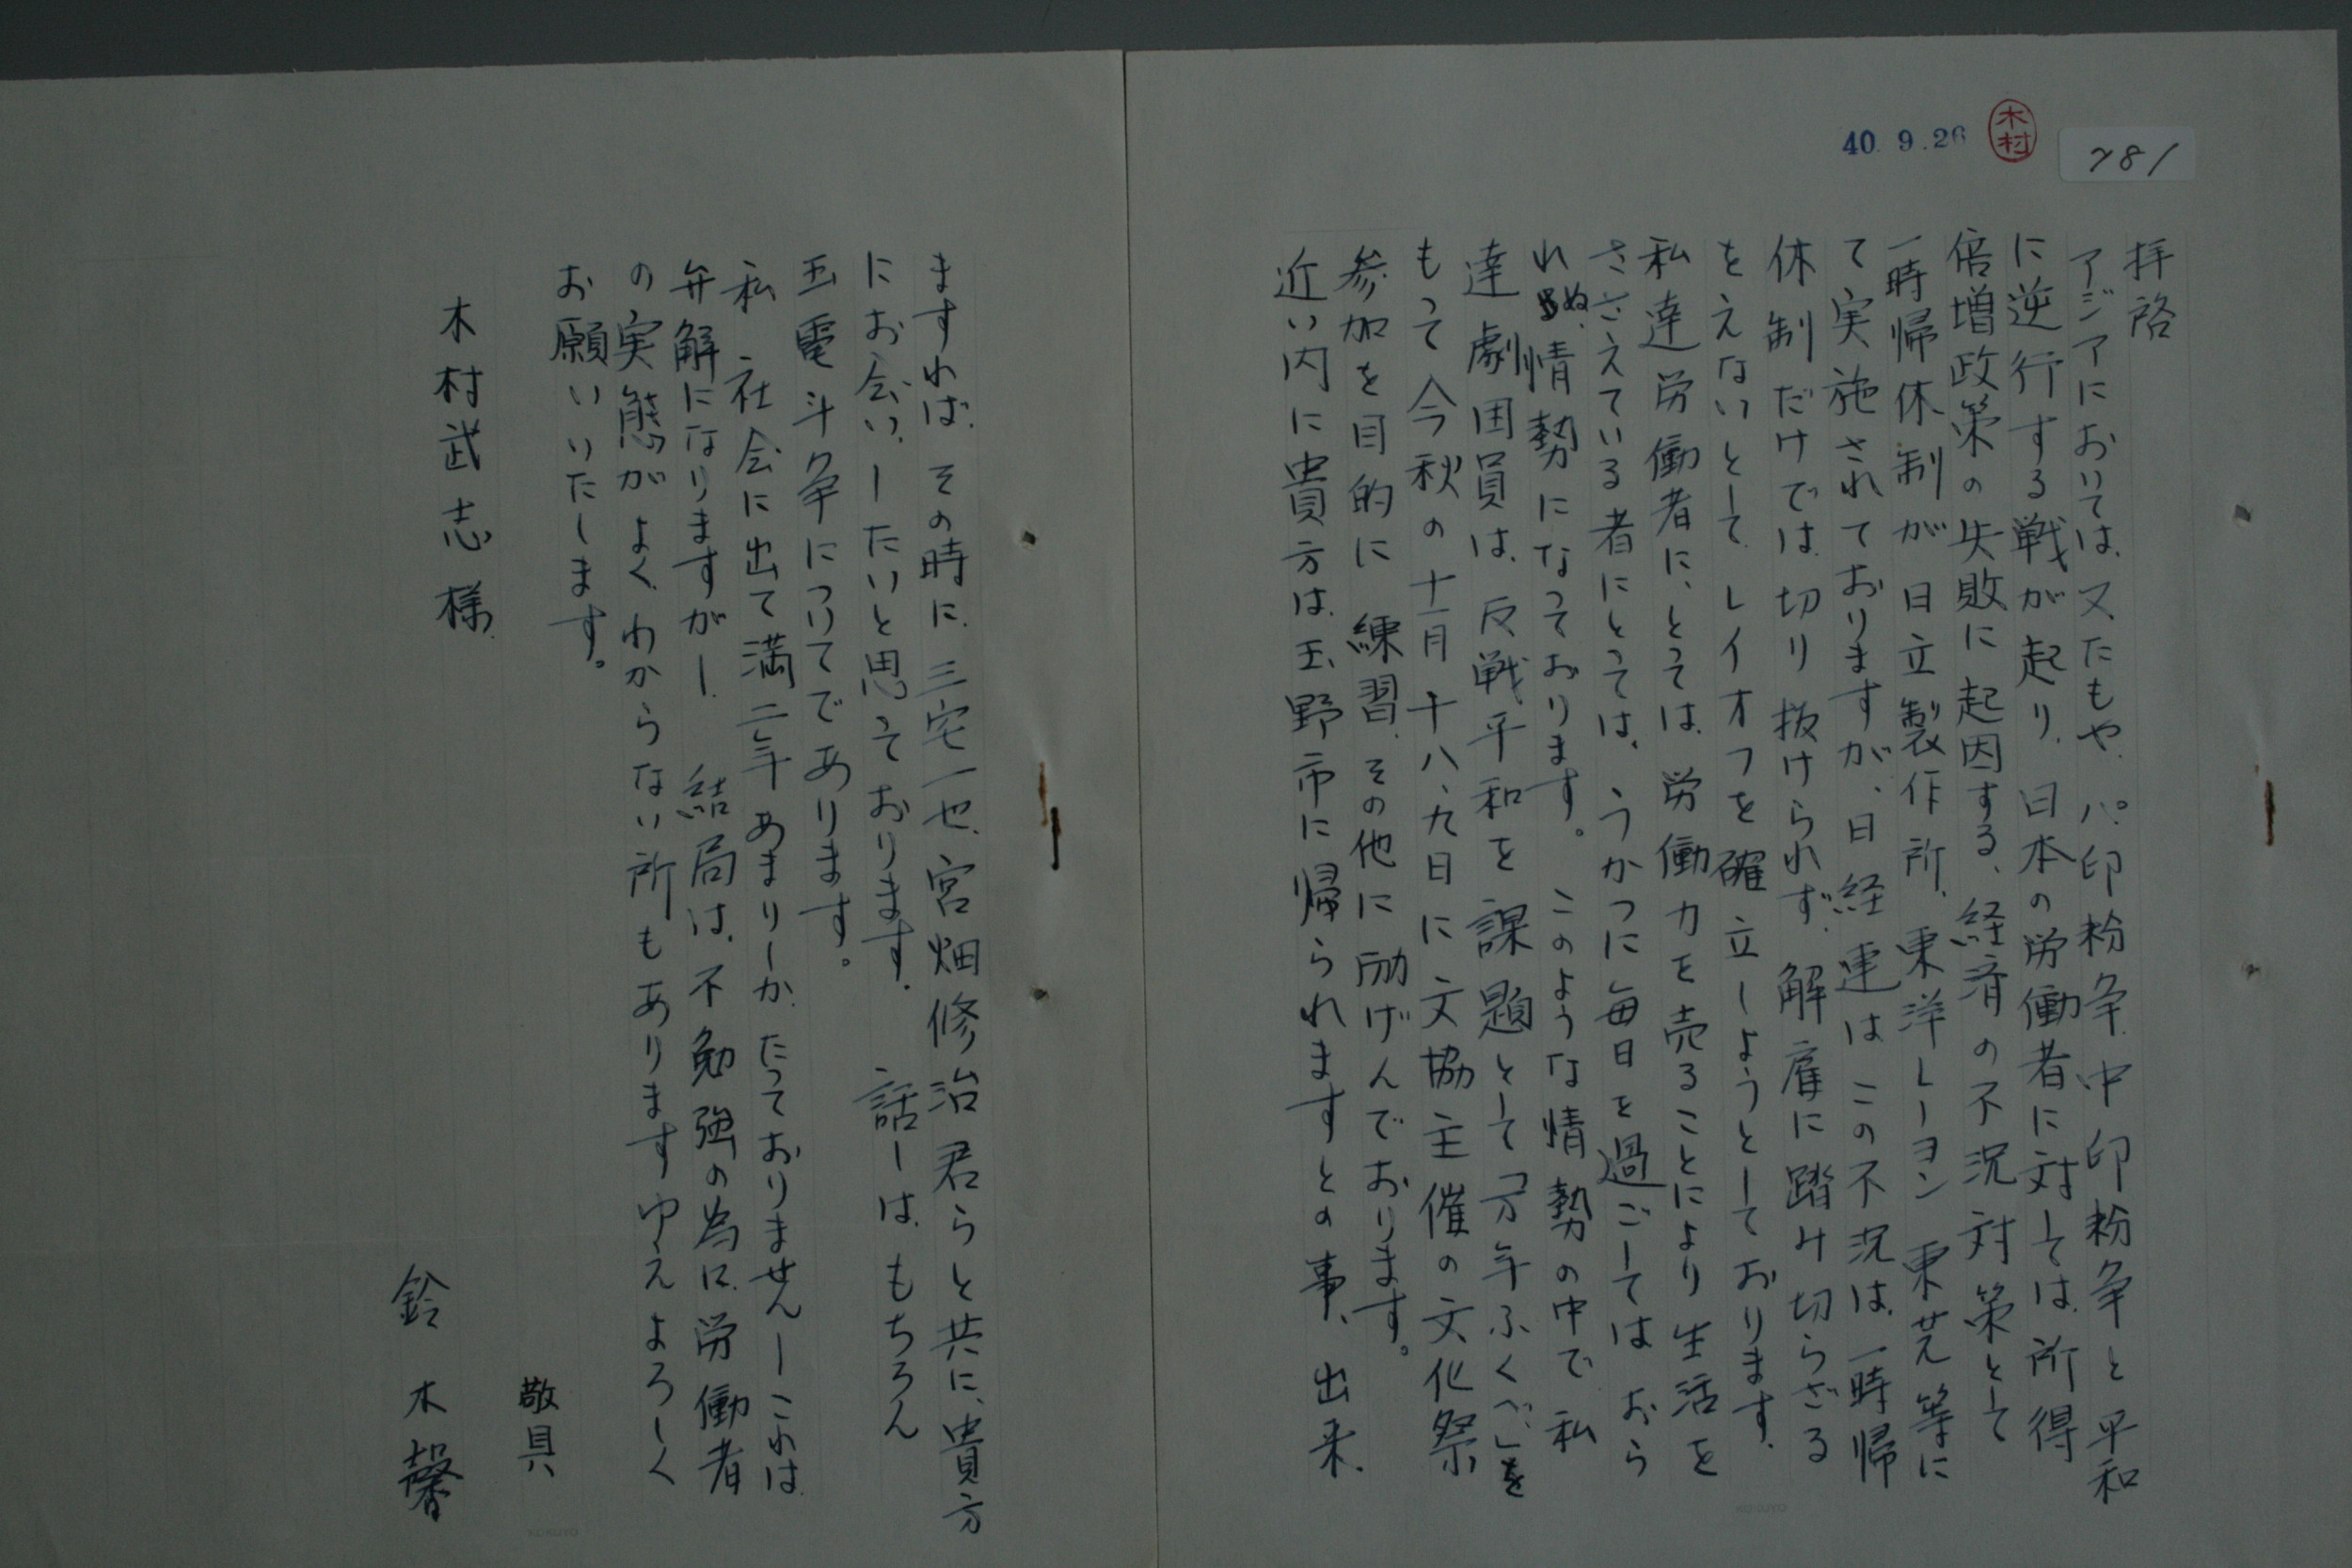 781
木村
40.9.26
拝啓
アジアにおいては、又たもや、パ印粉争、中印粉争と平和
に逆行する戦が起り、日本の労働者に対しては、所得
倍増政策の失敗に起因する、経済の不況対策として
一時帰休制が日立製作所、東洋レーヨン 東芝等に
て実施されておりますが、日経連はこの不況は、一時帰
休制だけでは、切り抜けられず、解雇に踏み切らざる
をえないとして、レイオフを確立しようとしております。
私達労働者に、とっては、労働力を売ることにより生活を
ささえている者にとっては、うかつに毎日を過ごしてはおら
れぬ、情勢になっております。このような情勢の中で、私
達劇団員は、反戦平和を課題として「万年ふくべ」を
もって今秋の十一月十八、九日に文協主催の文化祭
参加を目的に練習、その他に励げんでおります。
近い内に貴方は、玉野市に帰られますとの事、出来
ますれば、その時に、三宅一也、宮畑修治君らと共に、貴方
にお会い、したいと思っております。話しは、もちろん
玉電斗争についてであります。
私 社会に出て満二年あまりしか、たっておりませんーこれは
弁解になりますがー、結局は、不勉強の為に、労働者
の実態がよく、わからない所もありますゆえよろしく
お願いいたします。
敬具
木村武志様
鈴木馨